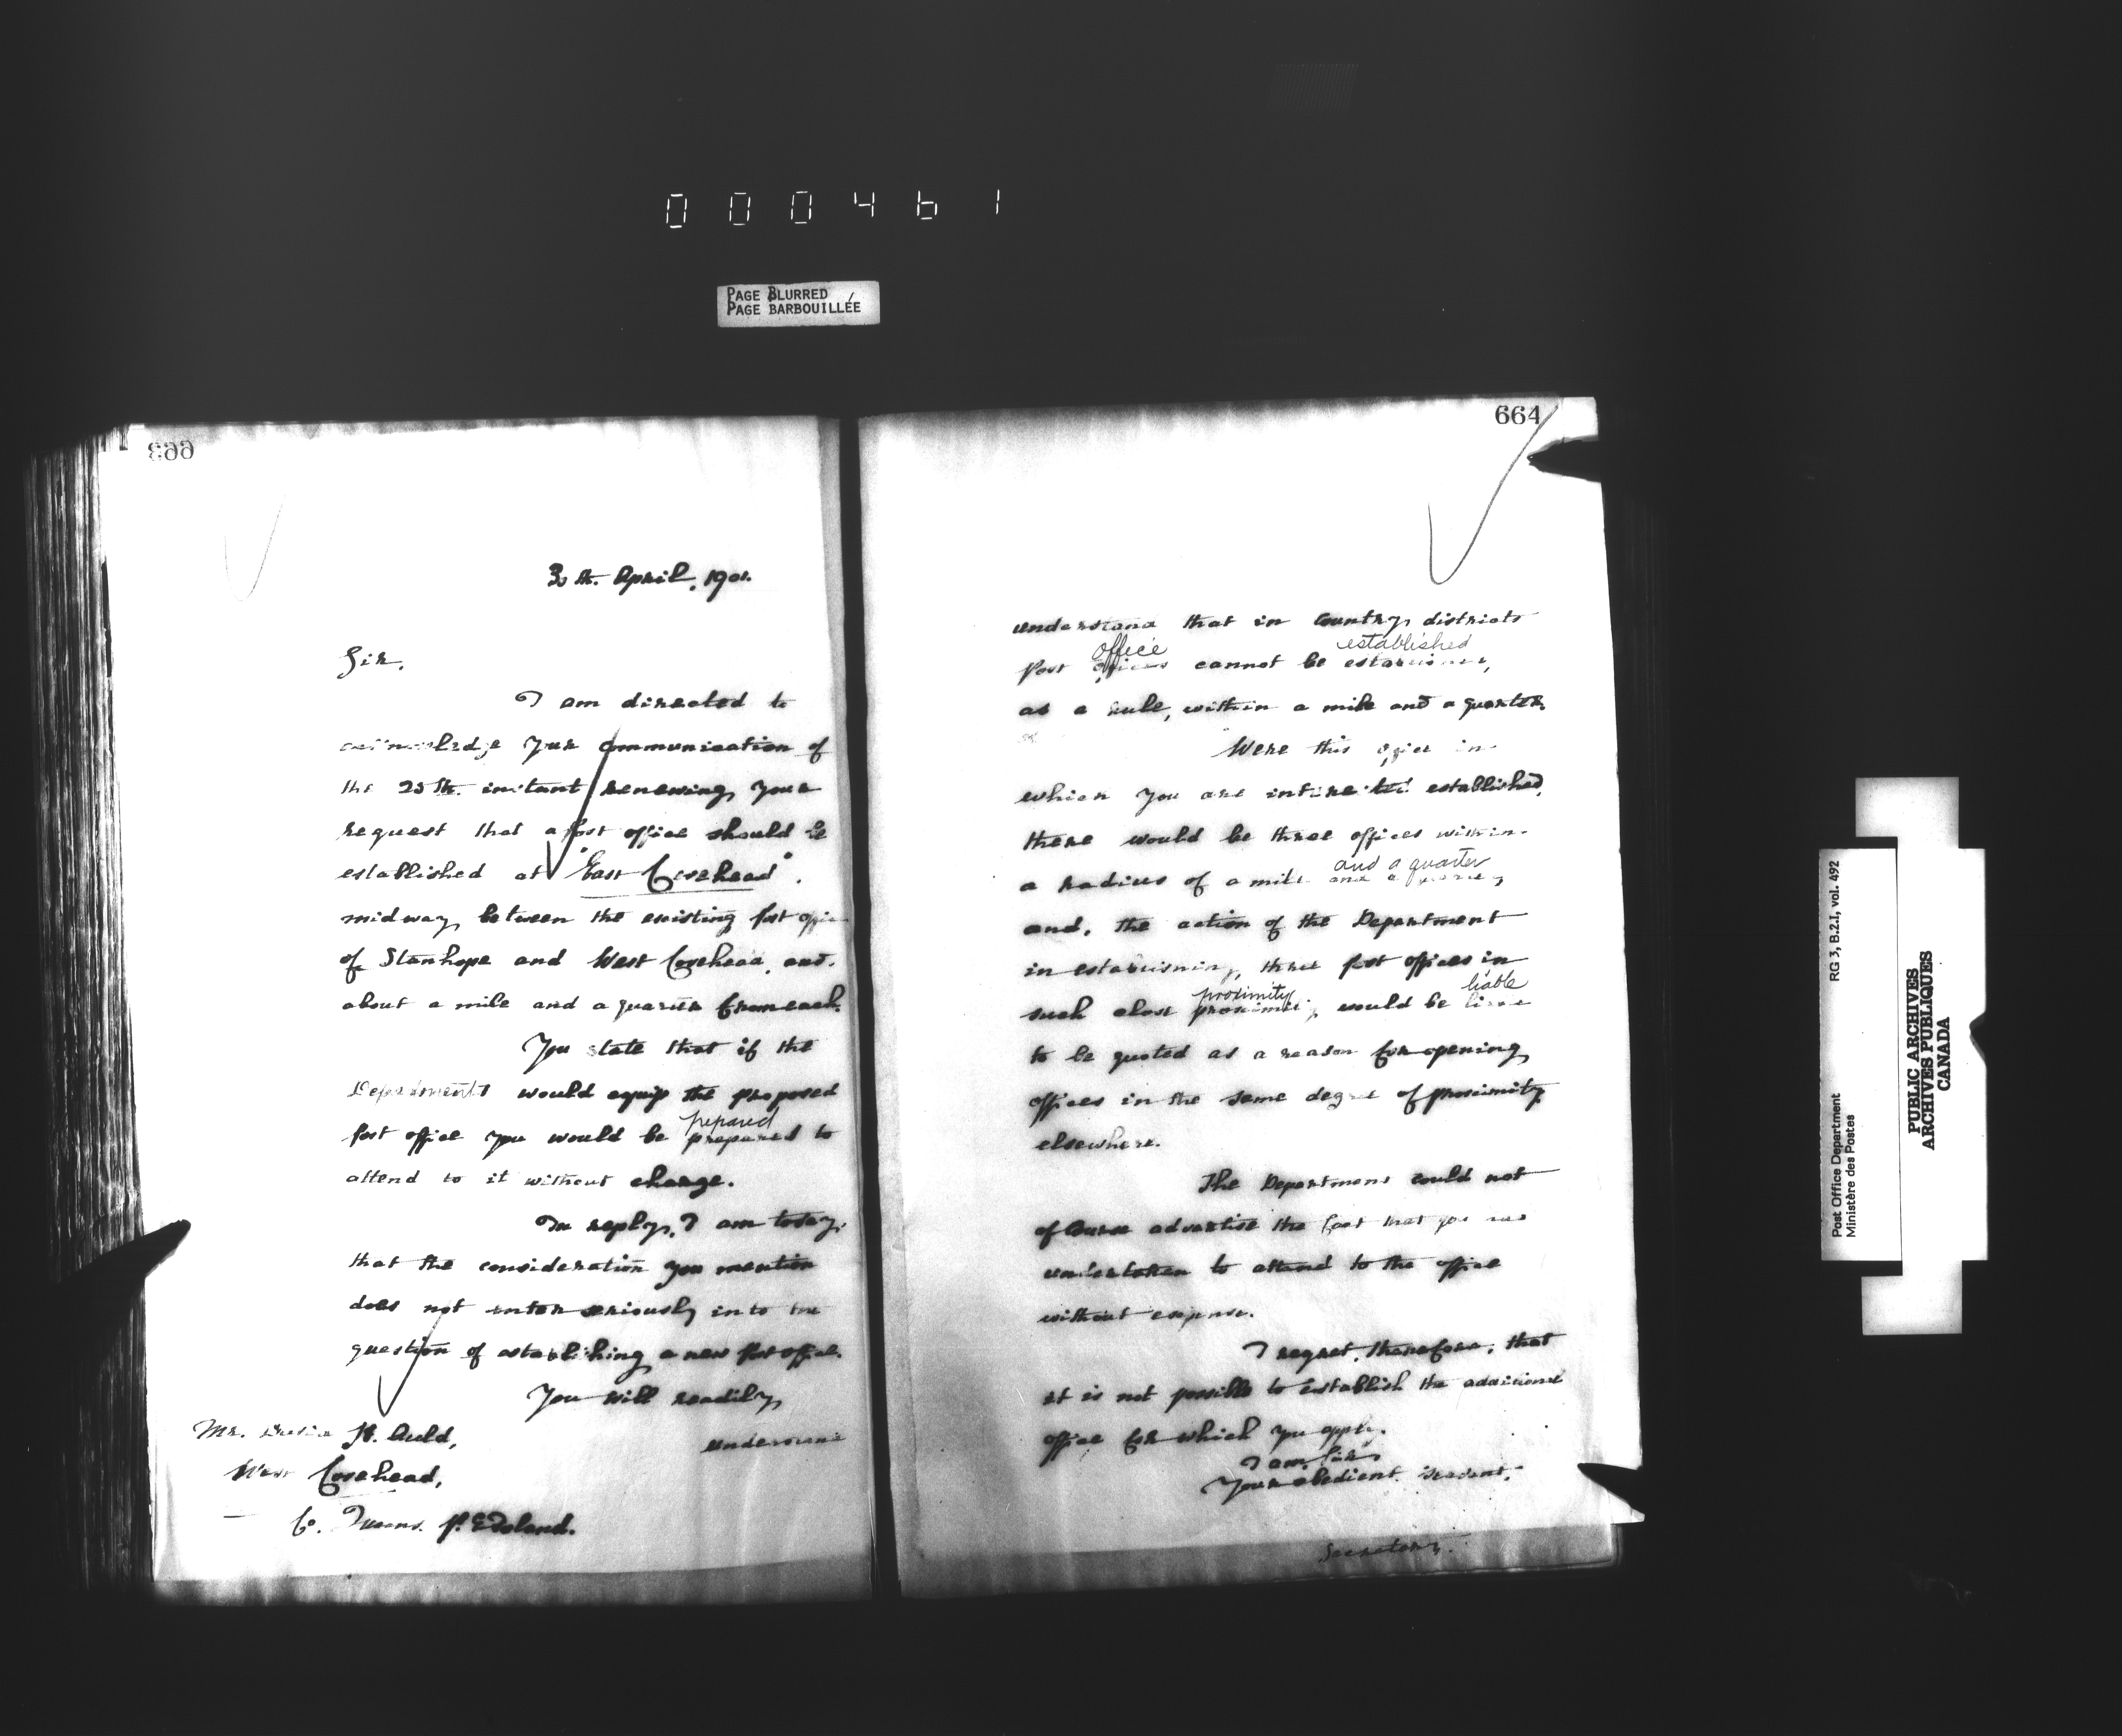 000461
PAGE BLURRED
PAGE BARBOUILLÉE
663
April, 190
Sir,
I am directed to
acknowledge your communication of
the 25th. instant renewing your
request that a post office should be
established at "East Covehead",
midway between the existing post office
of Stanhope and West Covehead, and
about a mile and a quarter from each.
You state that if the
Department would equip the proposed
prepared
post office you would be prepared to
attend to it without charge.
In reply, I am to say,
that the consideration you mention
does not enter seriously into the
question of establishing a new post office.
You will readily
understand
Mr. H. Auld,
West Covehead,
Co. Queens. P. E Island.
664
understand that in country districts
office established
Post offices cannot be established,
as a rule, within a mile and a quarter.
Were this office in
which you are interested established,
there would be three offices within
and a quarter
a radius of a mile and a quarter,
and, the action of the Department
in establishing, three post offices in
proximity liable
such close proximity, would be liable
to be quoted as a reason for opening
offices in the same degree of proximity
elsewhere.
The Department could not
of course advertise the fact that you
undertaken to attend to the office
without expense.
I regret, therefore, that
it is not possible to establish the additional
office for which you apply.
I am, Sir,
Your obedient servant,
Secretary.
Post Office Department RG 3, B.2.I, vol. 492
Ministère des Postes
PUBLIC ARCHIVES
ARCHIVES PUBLIQUES
CANADA